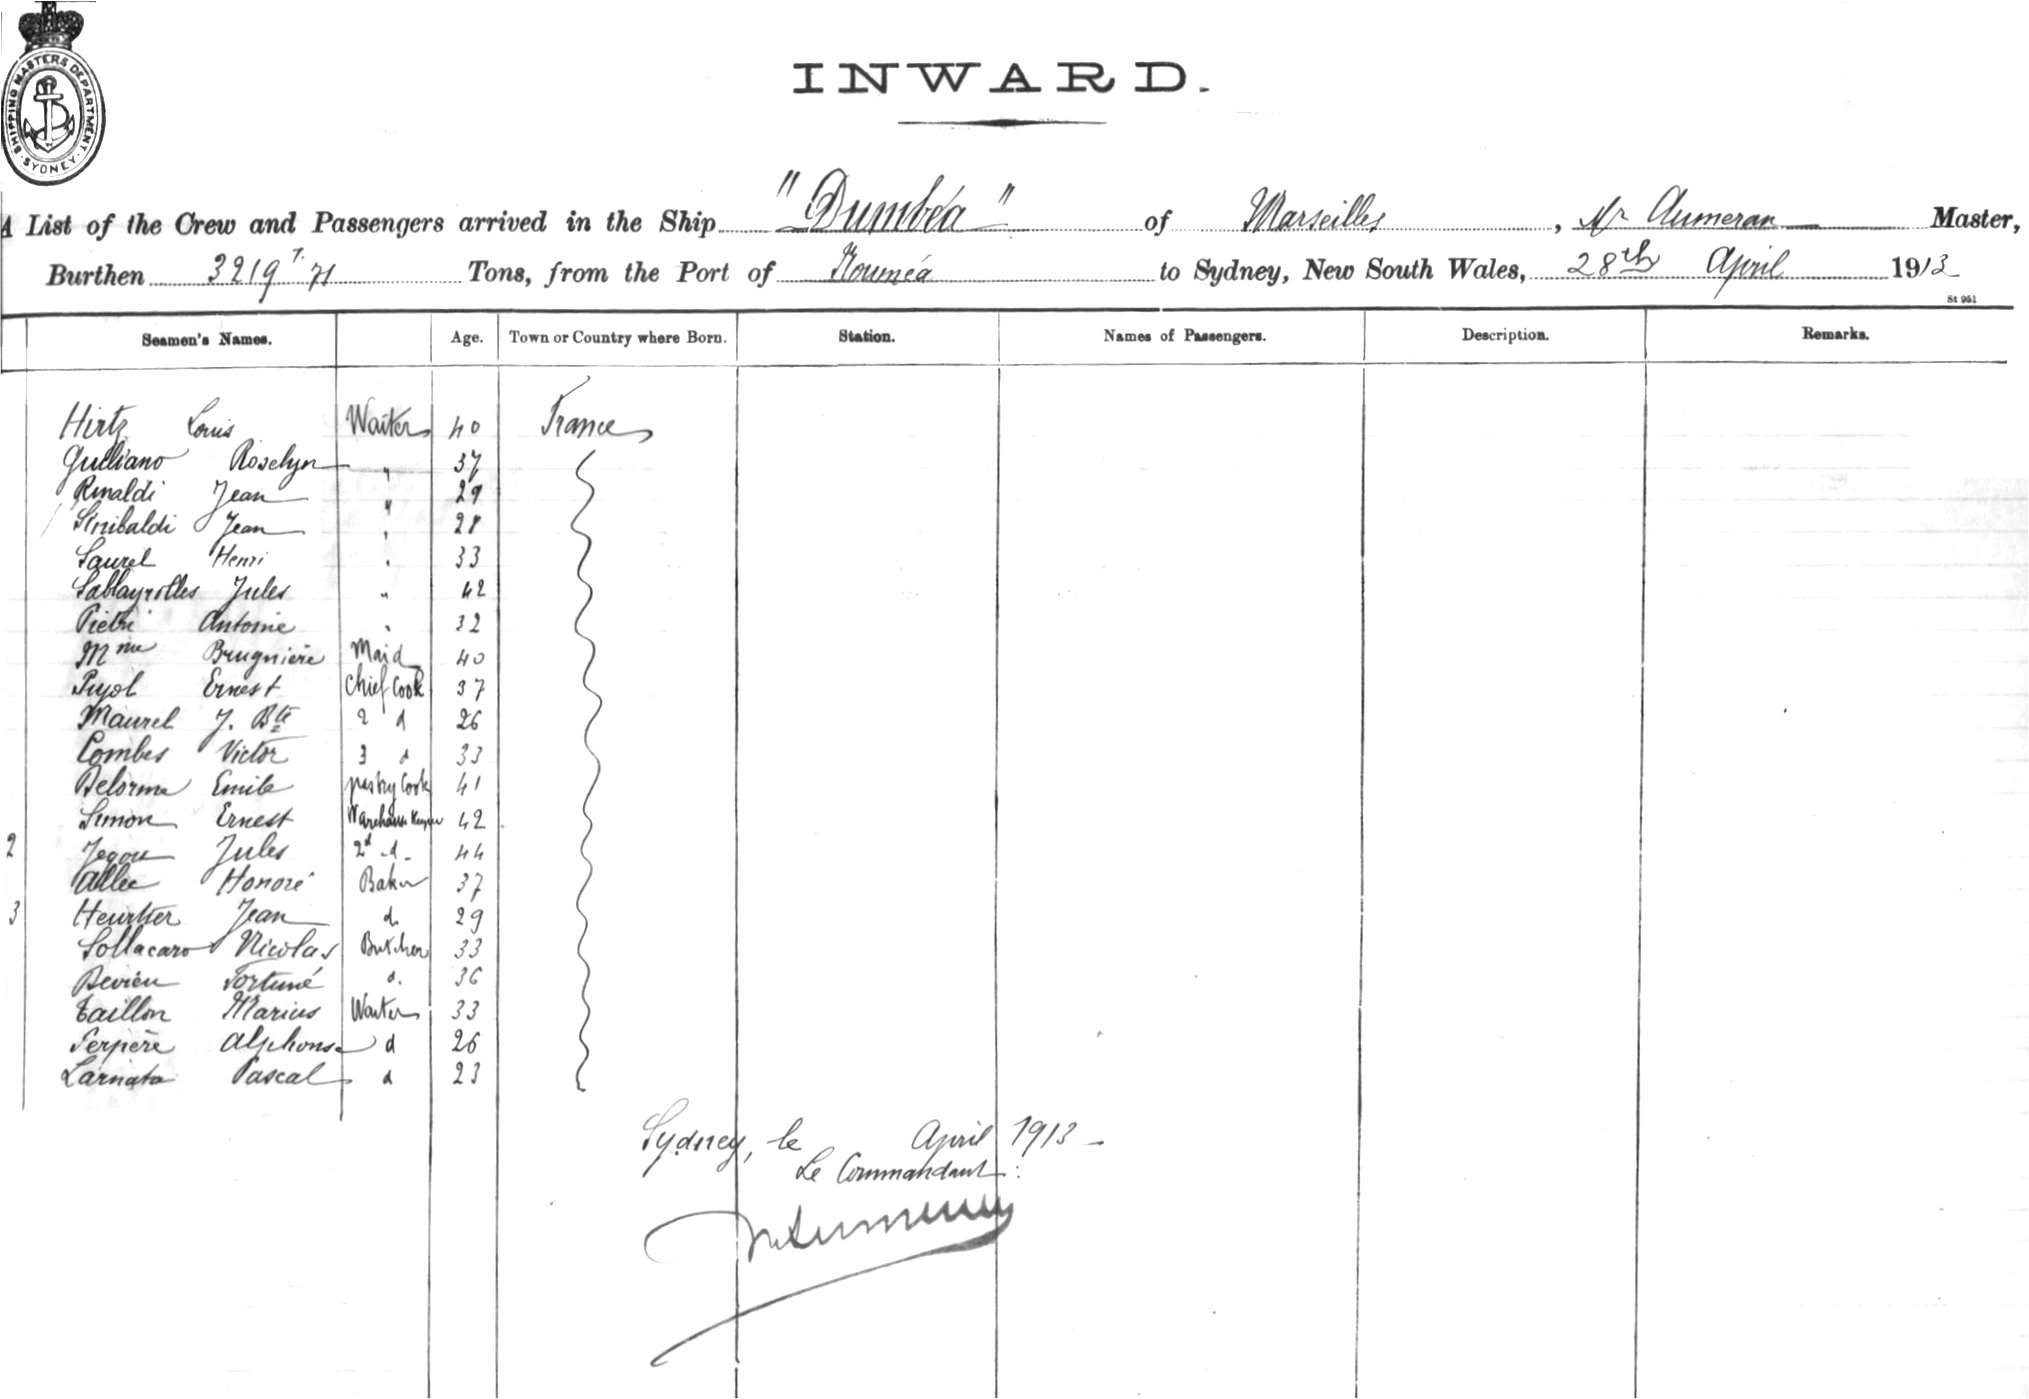 SHIPPING MASTERS DEPARTMENT
SYDNEY
INWARD.
A List of the Crew and Passengers arrived in the Ship "Dumbéa" of Marseilles, Mr Aumeran Master,
Burthen 3219 T. 71 Tons, from the Port of Nouméa to Sydney, New South Wales, 28th April 1913
St 951
Seamen's Names. Age. Town or Country where Born. Station. Names of Passengers. Description. Remarks.
Hirtz Louis Waiter 40 France
Guiliano Roselyn " 37
Rinaldi Jean " 29
Sinibaldi Jean " 28
Saurel Henri " 33
Sablayrolles Jules " 42
Pietri Antoine " 32
Mme Brugnière Maid 40
Pujol Ernest Chief Cook 37
Maurel J. Bte 2 d 26
Combes Victor 3 d 33
Delorme Emile pastry Cook 41
Simon Ernest Warehouse Keeper 42
2 Jegou Jules 2d d 44
Allec Honoré Baker 37
3 Heurtier Jean d. 29
Sollacaro Nicolas Butcher 33
Devieu Fortuné d. 36
Taillon Marius Waiter 33
Serpère Alphonse d 26
Larnata Pascal d 23
Sydney, le April 1913
Le Commandant :
Aumeran